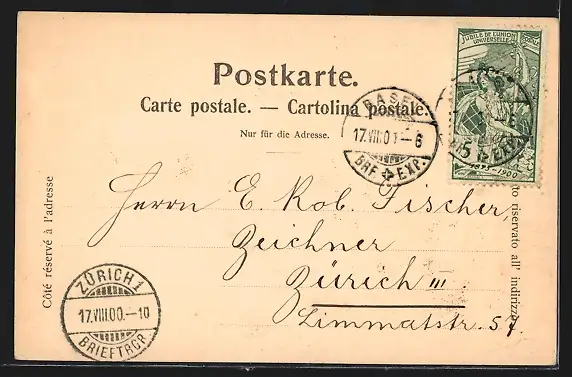 Postkarte.
Carte postale. — Cartolina postale.
Nur für die Adresse.
JUBILÉ DE L'UNION
UNIVERSELLE
5
1875-1900
BASEL
17.VIII.00.-6
BRF. EXP.
Côté réservé à l'adresse
Herrn E. Rob. Fischer
Zeichner
Zürich III.
Limmatstr. 57.
riservato all' indirizzo
ZÜRICH 1
17.VIII.00.-10
BRIEFTRGP.